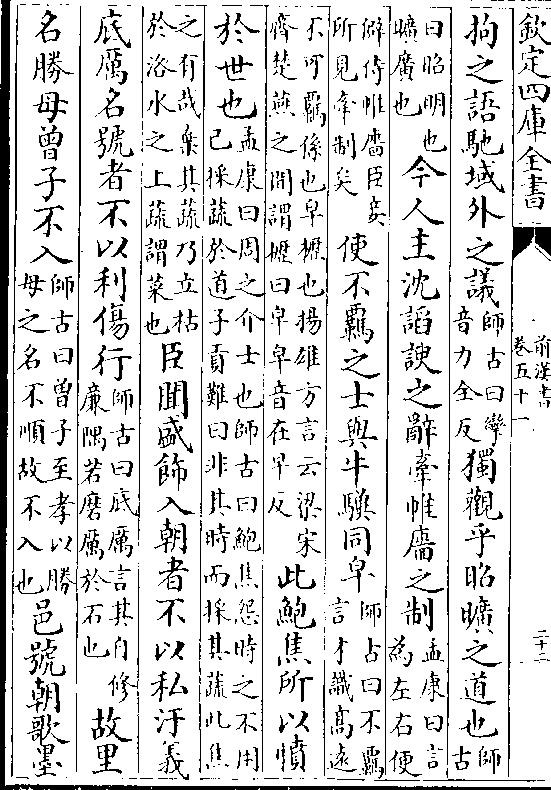 欽定四庫全書
前漢書
卷五十一
二十二
拘之語馳域外之議師古曰攣音力全反獨觀乎昭曠之道也師古
曰昭明也曠廣也今人主沈諂諛之辭牽帷廧之制孟康曰言為左右便
僻侍帷廧臣妾所見牽制矣使不羈之士與牛驥同皁師古曰不羈言才識高遠
不可羈係也皁櫪也揚雄方言云梁宋齊楚燕之間謂櫪曰皁皁音在早反此鮑焦所以憤
於世也孟康曰周之介士也師古曰鮑焦怨時之不用己採蔬於道子貢難曰非其時而採其蔬此焦
之有哉棄其蔬乃立枯於洛水之上蔬謂菜也臣聞盛飾入朝者不以私汙義
底厲名號者不以利傷行師古曰底厲言其自修廉隅若磨厲於石也故里
名勝母曾子不入師古曰曾子至孝以勝母之名不順故不入也邑號朝歌墨